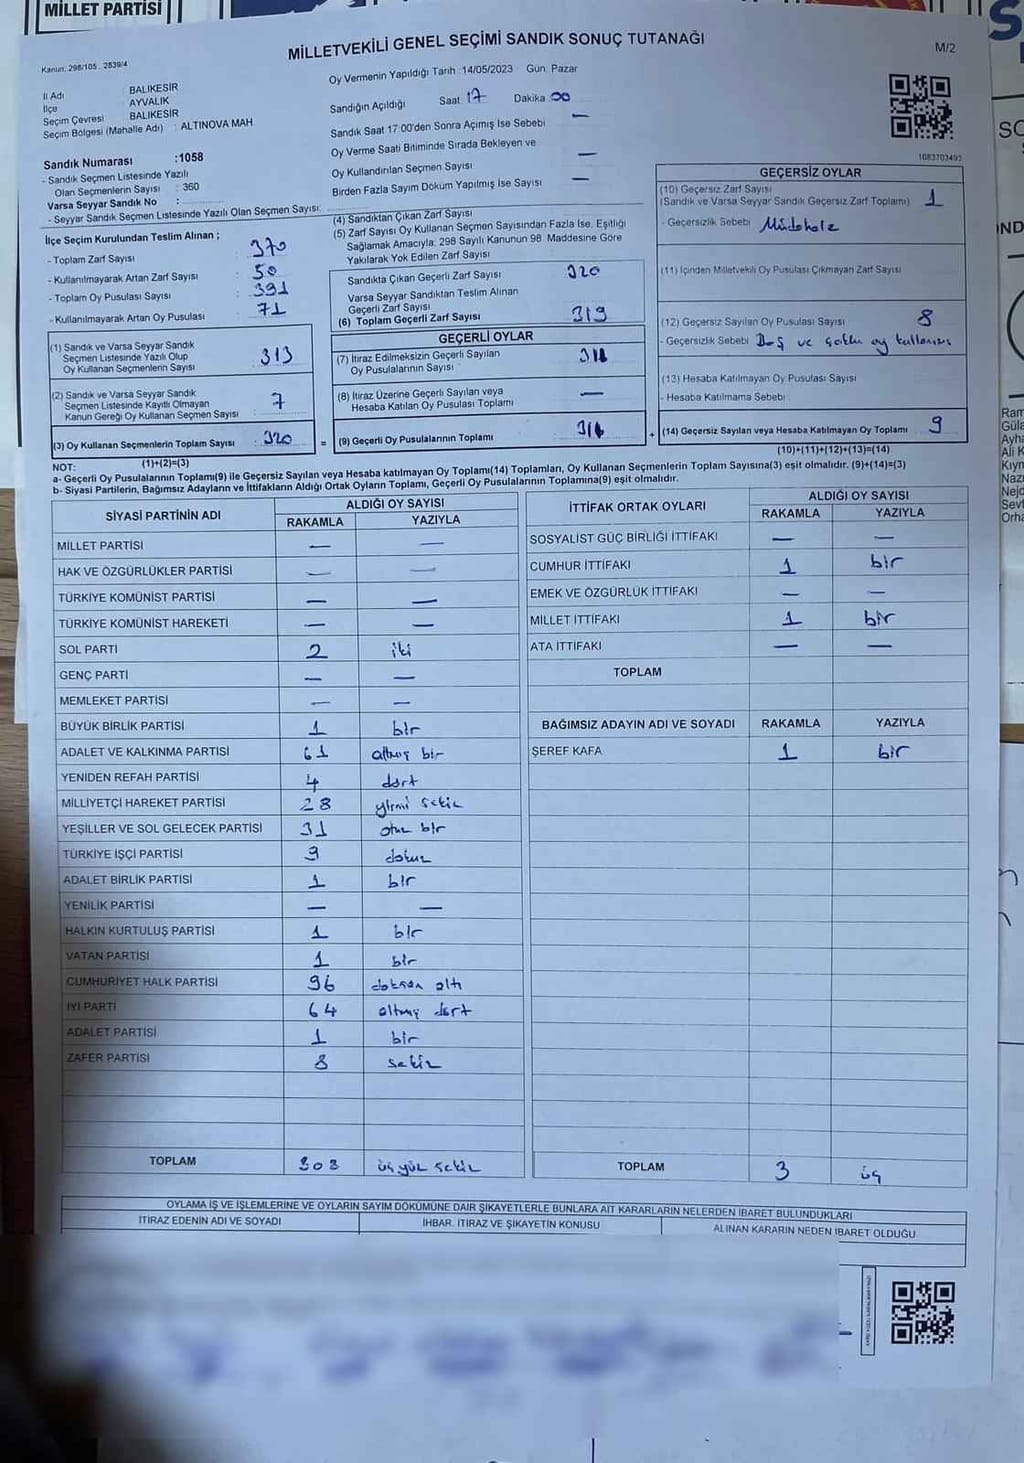 MİLLET PARTİSİ
MİLLETVEKİLİ GENEL SEÇİMİ SANDIK SONUÇ TUTANAĞI
M/2
Kanun: 298/105, 2839/4
İl Adı BALIKESİR
İlçe AYVALIK
Seçim Çevresi BALIKESİR
Seçim Bölgesi (Mahalle Adı) : ALTINOVA MAH.
Oy Vermenin Yapıldığı Tarih :14/05/2023 Gün: Pazar
Sandığın Açıldığı Saat 17 Dakika 00
Sandık Saat 17:00'den Sonra Açımış İse Sebebi —
Oy Verme Saati Bitiminde Sırada Bekleyen ve
Oy Kullandırılan Seçmen Sayısı —
Birden Fazla Sayım Döküm Yapılmış İse Sayısı —
1083703493
Sandık Numarası :1058
- Sandık Seçmen Listesinde Yazılı
Olan Seçmenlerin Sayısı : 360
Varsa Seyyar Sandık No :
- Seyyar Sandık Seçmen Listesinde Yazılı Olan Seçmen Sayısı:
İlçe Seçim Kurulundan Teslim Alınan ;
- Toplam Zarf Sayısı : 370
- Kullanılmayarak Artan Zarf Sayısı : 50
- Toplam Oy Pusulası Sayısı : 391
- Kullanılmayarak Artan Oy Pusulası : 71
(1) Sandık ve Varsa Seyyar Sandık
Seçmen Listesinde Yazılı Olup
Oy Kullanan Seçmenlerin Sayısı : 313
(2) Sandık ve Varsa Seyyar Sandık
Seçmen Listesinde Kayıtlı Olmayan
Kanun Gereği Oy Kullanan Seçmen Sayısı : 7
(3) Oy Kullanan Seçmenlerin Toplam Sayısı : 320
(1)+(2)=(3)
(4) Sandıktan Çıkan Zarf Sayısı
(5) Zarf Sayısı Oy Kullanan Seçmen Sayısından Fazla İse, Eşitliği
Sağlamak Amacıyla; 298 Sayılı Kanunun 98. Maddesine Göre
Yakılarak Yok Edilen Zarf Sayısı
Sandıkta Çıkan Geçerli Zarf Sayısı 320
Varsa Seyyar Sandıktan Teslim Alınan
Geçerli Zarf Sayısı
(6) Toplam Geçerli Zarf Sayısı 319
GEÇERLİ OYLAR
(7) İtiraz Edilmeksizin Geçerli Sayılan
Oy Pusulalarının Sayısı
(8) İtiraz Üzerine Geçerli Sayılan veya
Hesaba Katılan Oy Pusulası Toplamı —
= (9) Geçerli Oy Pusulalarının Toplamı
GEÇERSİZ OYLAR
(10) Geçersiz Zarf Sayısı
(Sandık ve Varsa Seyyar Sandık Geçersiz Zarf Toplamı) 1
- Geçersizlik Sebebi Müdahale
(11) İçinden Milletvekili Oy Pusulası Çıkmayan Zarf Sayısı
(12) Geçersiz Sayılan Oy Pusulası Sayısı 8
- Geçersizlik Sebebi Boş ve çoklu oy kullanımı
(13) Hesaba Katılmayan Oy Pusulası Sayısı
- Hesaba Katılmama Sebebi
+ (14) Geçersiz Sayılan veya Hesaba Katılmayan Oy Toplamı 9
(10)+(11)+(12)+(13)=(14)
NOT:
a- Geçerli Oy Pusulaları Toplamı(9) ile Geçersiz Sayılan veya Hesaba katılmayan Oy Toplamı(14) Toplamları, Oy Kullanan Seçmenlerin Toplam Sayısına(3) eşit olmalıdır. (9)+(14)=(3)
b- Siyasi Partilerin, Bağımsız Adayların ve İttifakların Aldığı Ortak Oyların Toplamı, Geçerli Oy Pusulalarının Toplamına(9) eşit olmalıdır.
SİYASİ PARTİNİN ADI ALDIĞI OY SAYISI
RAKAMLA YAZIYLA
MİLLET PARTİSİ — —
HAK VE ÖZGÜRLÜKLER PARTİSİ — —
TÜRKİYE KOMÜNİST PARTİSİ — —
TÜRKİYE KOMÜNİST HAREKETİ — —
SOL PARTİ 2 iki
GENÇ PARTİ — —
MEMLEKET PARTİSİ — —
BÜYÜK BİRLİK PARTİSİ 1 bir
ADALET VE KALKINMA PARTİSİ 61 altmış bir
YENİDEN REFAH PARTİSİ 4 dört
MİLLİYETÇİ HAREKET PARTİSİ 28 yirmi sekiz
YEŞİLLER VE SOL GELECEK PARTİSİ 31 otuz bir
TÜRKİYE İŞÇİ PARTİSİ 9 dokuz
ADALET BİRLİK PARTİSİ 1 bir
YENİLİK PARTİSİ — —
HALKIN KURTULUŞ PARTİSİ 1 bir
VATAN PARTİSİ 1 bir
CUMHURİYET HALK PARTİSİ 96 doksan altı
İYİ PARTİ 64 altmış dört
ADALET PARTİSİ 1 bir
ZAFER PARTİSİ 8 sekiz
TOPLAM 308 üç yüz sekiz
İTTİFAK ORTAK OYLARI ALDIĞI OY SAYISI
RAKAMLA YAZIYLA
SOSYALİST GÜÇ BİRLİĞİ İTTİFAKI — —
CUMHUR İTTİFAKI 1 bir
EMEK VE ÖZGÜRLÜK İTTİFAKI — —
MİLLET İTTİFAKI 1 bir
ATA İTTİFAKI — —
TOPLAM
BAĞIMSIZ ADAYIN ADI VE SOYADI RAKAMLA YAZIYLA
ŞEREF KAFA 1 bir
TOPLAM 3 üç
OYLAMA İŞ VE İŞLEMLERİNE VE OYLARIN SAYIM DÖKÜMÜNE DAİR ŞİKAYETLERLE BUNLARA AİT KARARLARIN NELERDEN İBARET BULUNDUKLARI
İTİRAZ EDENİN ADI VE SOYADI İHBAR, İTİRAZ VE ŞİKAYETİN KONUSU ALINAN KARARIN NEDEN İBARET OLDUĞU